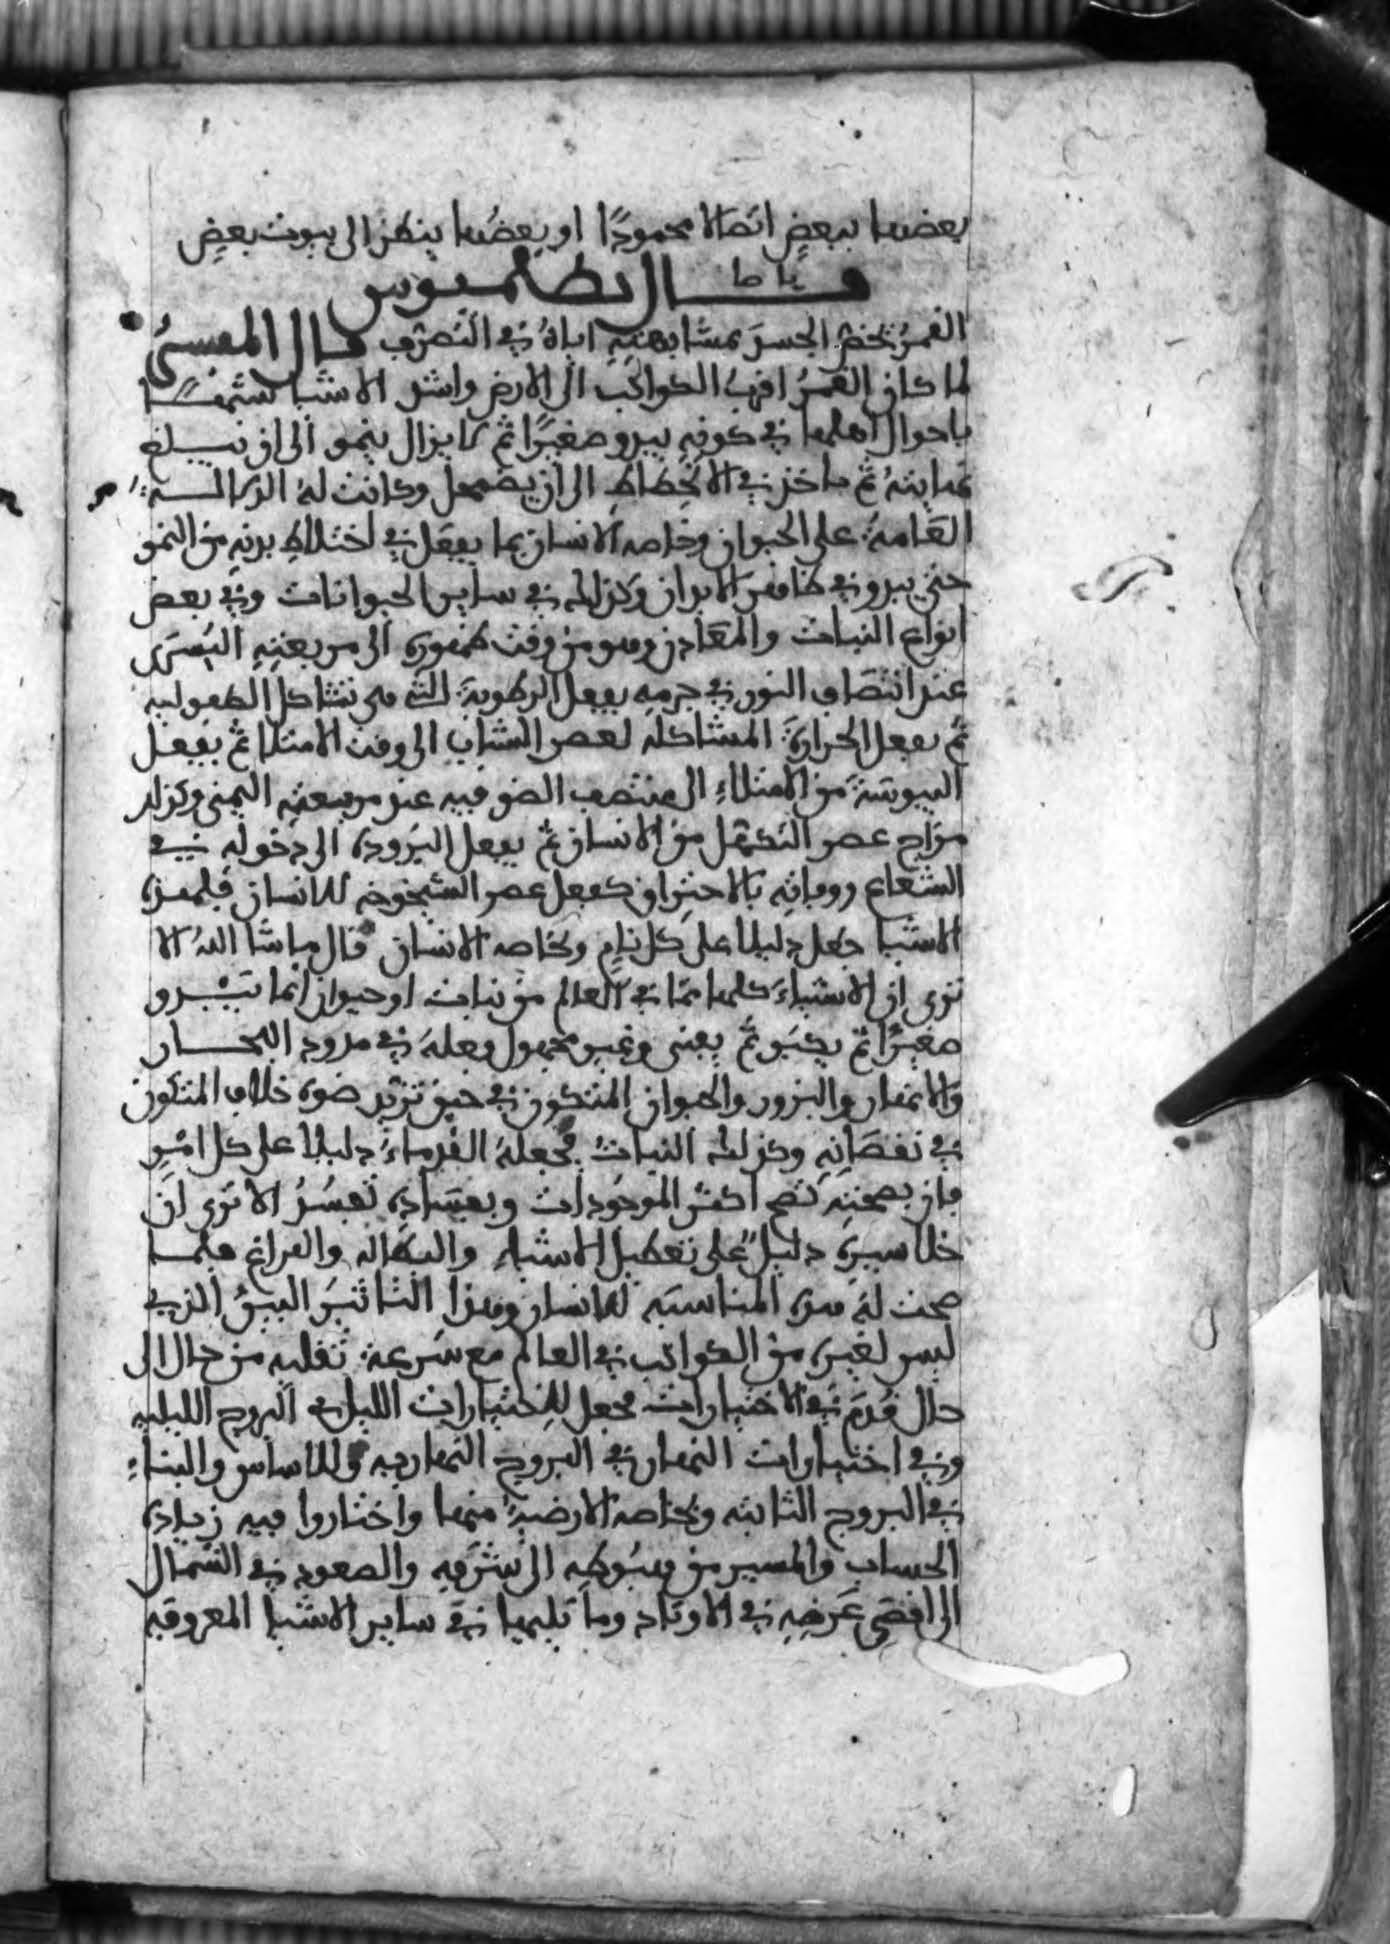 بعضها ببعض اتصالا محمودًا او بعضها ينظر الى بيوت بعض
قال بطلميوس
القمرُ يخص الجسدَ بمشابهته اياهُ في التصرف قال المفسرُ
لما كان القمرُ اقربُ الكواكب الى الارض واشد الاشيا شبهًا
باحوال اهلها في كونه يبدو صغيرًا ثم لا يزال ينمو الى ان يبلغ
نهايتهُ ثم ياخذ في الانحطاطِ الى ان يضمحل وكانت لهُ الدلالة
العامة على الحيوان وخاصه الانسان بما يفعل في اختلاطِ بدنهِ من النمو
حتى يبدو في ظاهر الابدان وكذلك في ساير الحيوانات وفي بعض
انواع النبات والمعادن وهو من وقت ظهوره الى مربعتهِ اليسرى
عند انتصاف النور في جرمه يفعل الرطوبة التي هي تشاكل الطفوليه
ثم يفعل الحرارة المشاكله لعصر الشباب الى وقت الامتلا ثم يفعل
اليبوسة من الامتلاءِ الى منتصف الضو فيه عند مربعته اليمنى وكذلك
مزاج عصر التكهل من الانسان ثم يفعل البرودة الى دخوله في
الشعاع وذهابه بالاحتراق كفعل عصر الشيخوخه للانسان فلهذه
الاشيا جعل دليلا على كل نامٍ وبخاصه الانسان قال ما شا اللهُ الا
ترى ان الاشياءَ كلها مما في العالم من نبات او حيوان انما تبدو
صغيرًا ثم يكبر ثم يفنى وغير مجهول فعله في مدود البحار
والانهار والبزور والحيوان المتكون في حين تزيد ضوه خلاف المتكون
في نقصانهِ وكذلك النبات فجعلهُ القدماءُ دليلا على كل امرٍ
فان بصحته تصح اكثر الموجودات وبفساده تفسُدُ الا ترى ان
خلا سيره دليل على تعطيل الاشياءِ والبطاله والفراغ فلما
صحت لهُ هذه المناسبه للانسان وهذا التاثير البينُ الذي
ليس لغيره من الكواكب في العالم مع سرعة تقلبه من حال الى
حال قدم في الاختيارات فجعل للاختيارات الليل في البروج الليليه
وفي اختيارات النهار في البروج النهاريه وللاساس والبناءِ
في البروج الثابته وبخاصه الارضية منها واختاروا فيه زياده
الحساب والمسير من هبوطه الى شرفهِ والصعود في الشمال
الى اقصى عرضهِ في الاوتاد وما يليها في ساير الاشيا المعروفه